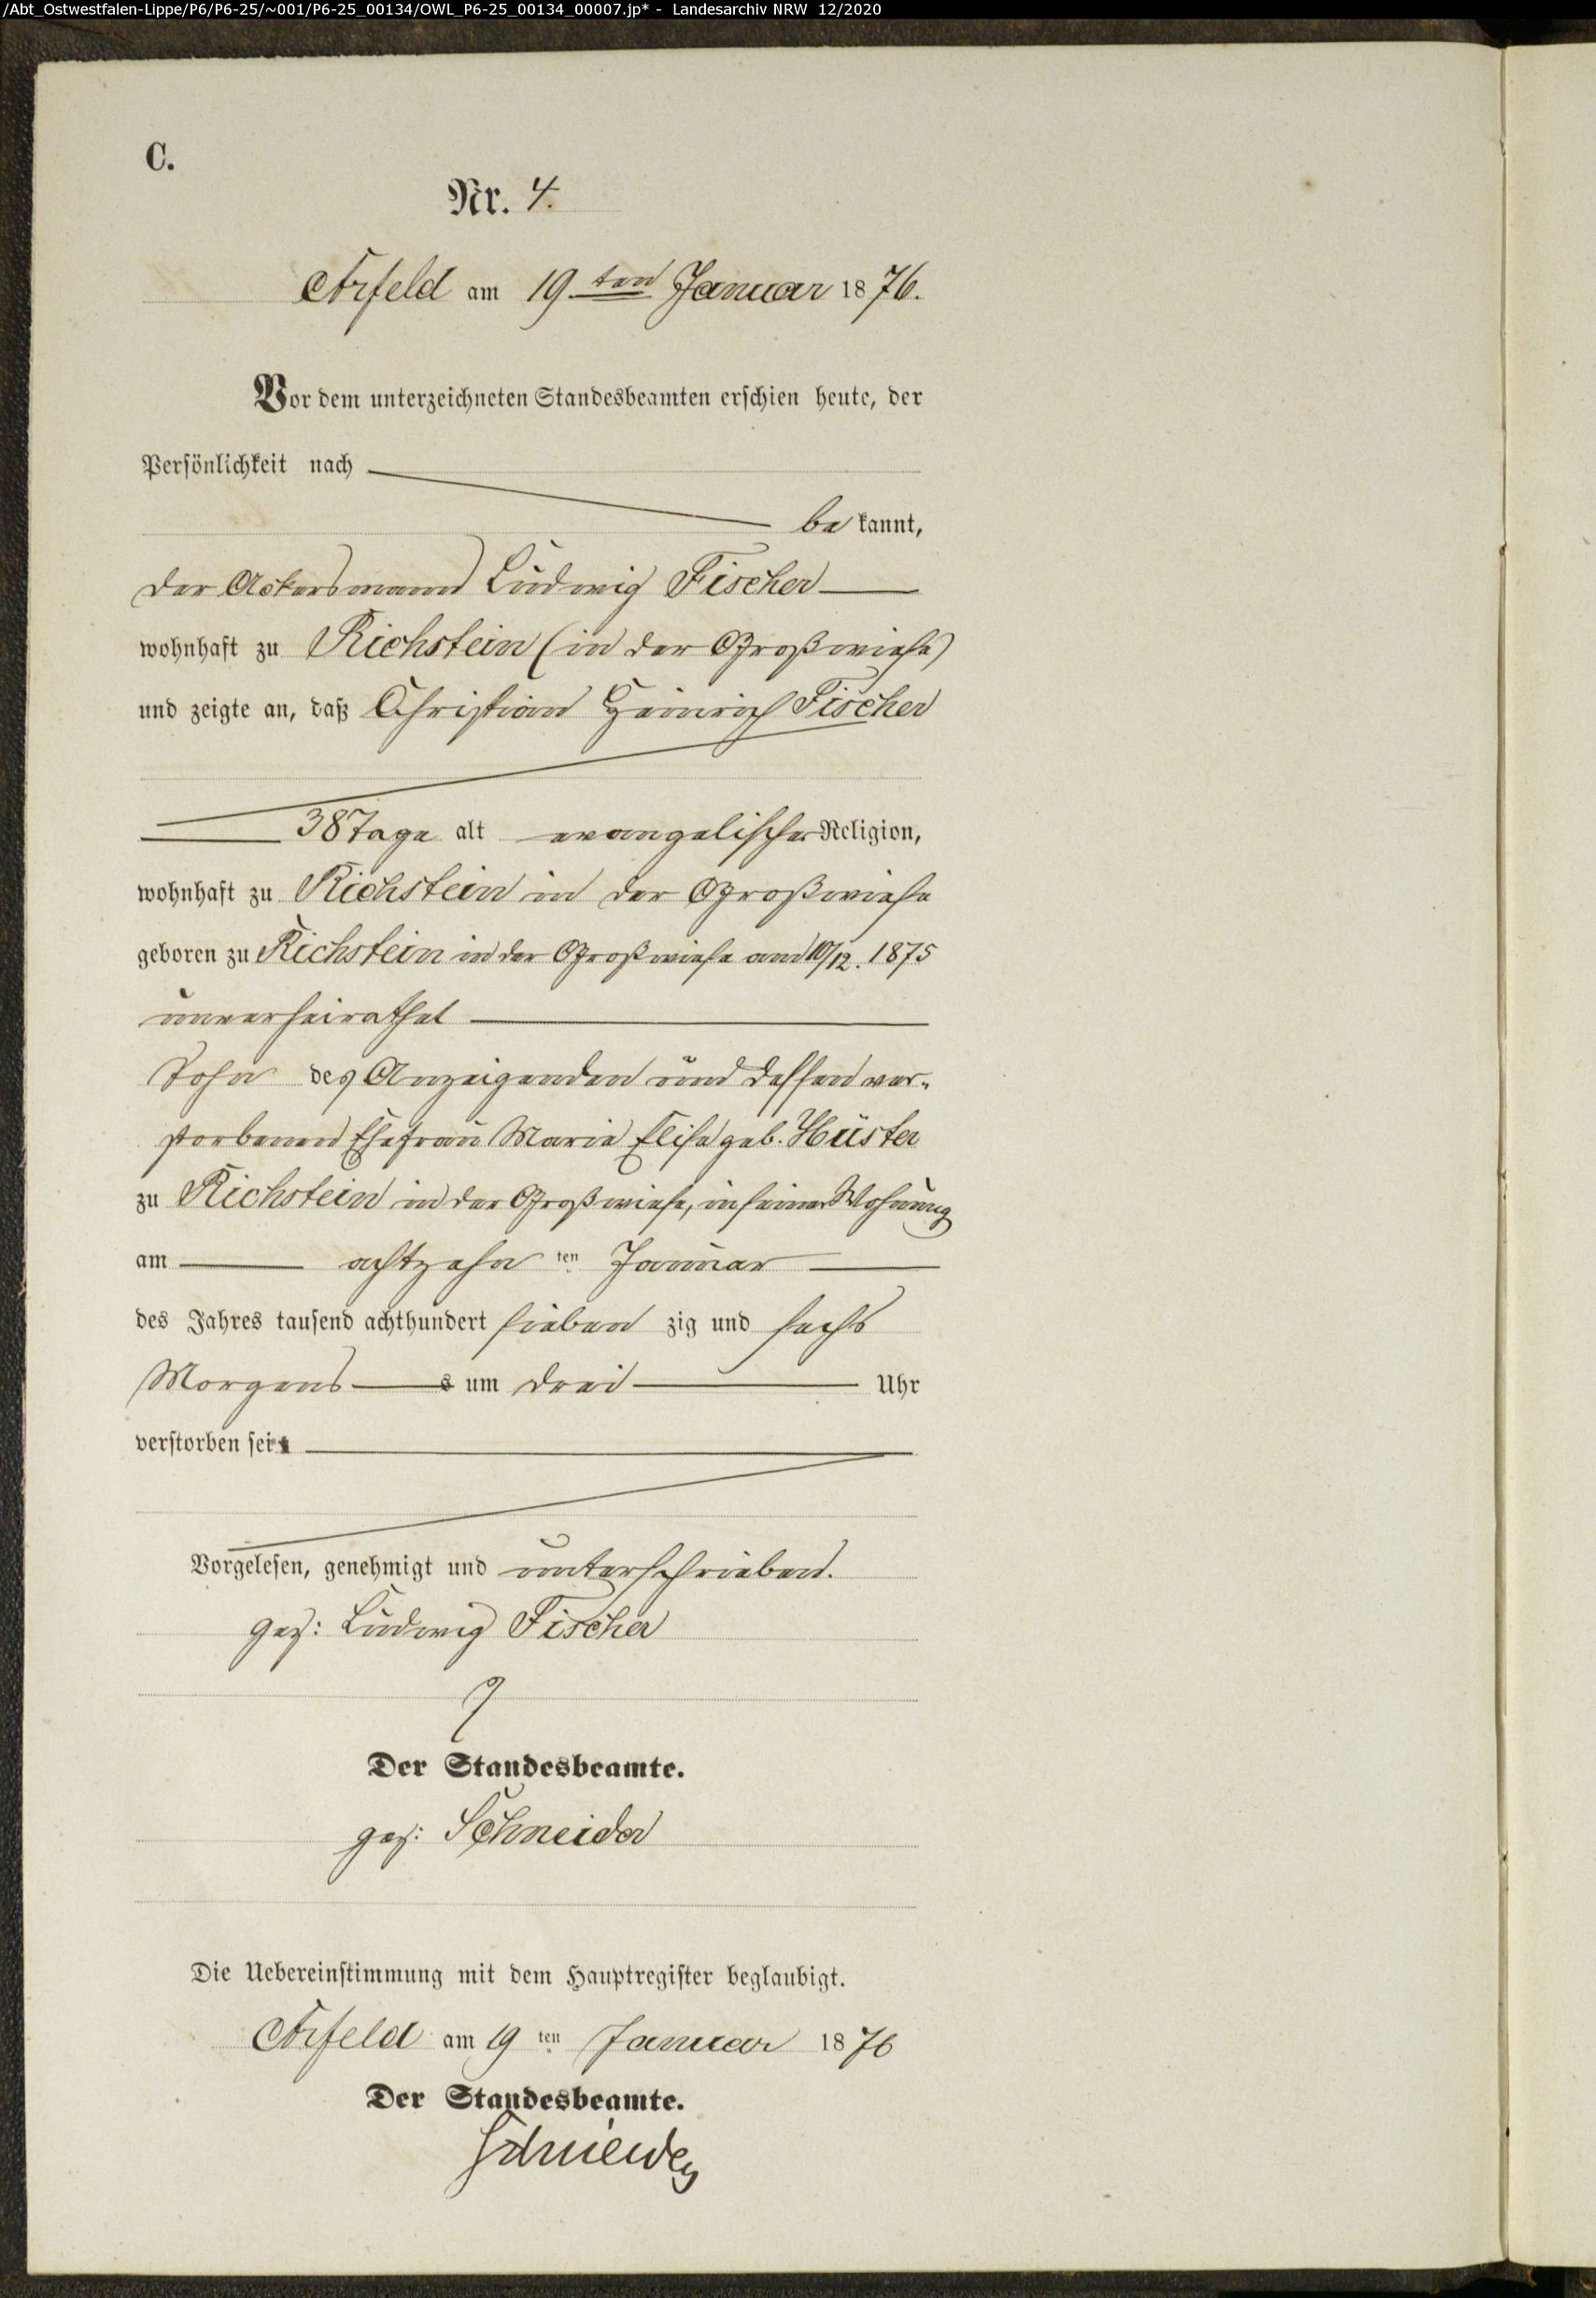 /Abt_Ostwestfalen-Lippe/P6/P6-25/~001/P6-25_00134/OWL_P6-25_00134_00007.jp* - Landesarchiv NRW 12/2020
C.
Nr. 4.
Arfeld am 19ten Januar 1876.
Vor dem unterzeichneten Standesbeamten erschien heute, der
Persönlichkeit nach
bekannt,
der Ackersmann Ludwig Fischer
wohnhaft zu Richstein (in der Großwiese)
und zeigte an, daß Christian Heinrich Fischer
38 Tage alt evangelischer Religion,
wohnhaft zu Richstein in der Großwiese
geboren zu Richstein in der Großwiese am 10/12. 1875
unverheirathet
Sohn des Anzeigenden und dessen ver-
storbenen Ehefrau Marie Elise geb. Hüster
zu Richstein in der Großwiese, in seiner Wohnung
am achtzehn ten Januar
des Jahres tausend achthundert sieben zig und sechs
Morgens s um drei Uhr
verstorben sei
Vorgelesen, genehmigt und unterschrieben.
gez: Ludwig Fischer
Der Standesbeamte.
gez: Schneider
Die Uebereinstimmung mit dem Hauptregister beglaubigt.
Arfeld am 19 ten Januar 1876
Der Standesbeamte.
Schneider